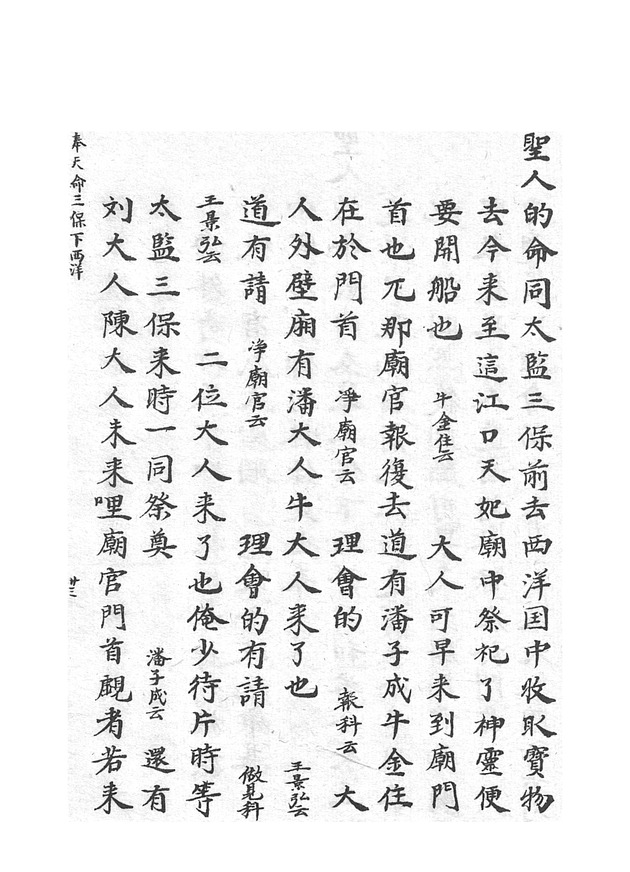 聖人的命同太監三保前去西洋国中收取寶物
去今来至這江口天妃廟中祭祀了神靈便
要開船也 牛金住云 大人可早来到廟門
首也兀那廟官報復去道有潘子成牛金住
在於門首 凈廟官云 理會的 報科云 大
人外壁廂有潘大人牛大人来了也 王景弘云
道有請 凈廟官云 理會的有請 做見科
王景弘云 二位大人来了也俺少待片時等
太監三保来時一同祭奠 潘子成云 還有
刘大人陳大人未来哩廟官門首覷者若来
奉天命三保下西洋
廿三